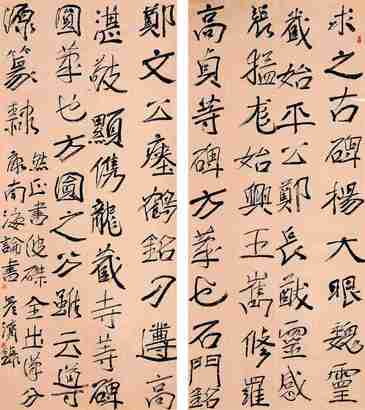 求之古碑楊大眼魏靈
藏始平公鄭長猷靈感
張猛龙始興王雋修羅
高貞等碑方筆也石門銘
鄭文公瘞鶴銘刁遵高
湛敬顯儁龍藏寺等碑
圓筆也方圓之分雖云導
源篆隸然正書波磔全出漢分
康南海論書